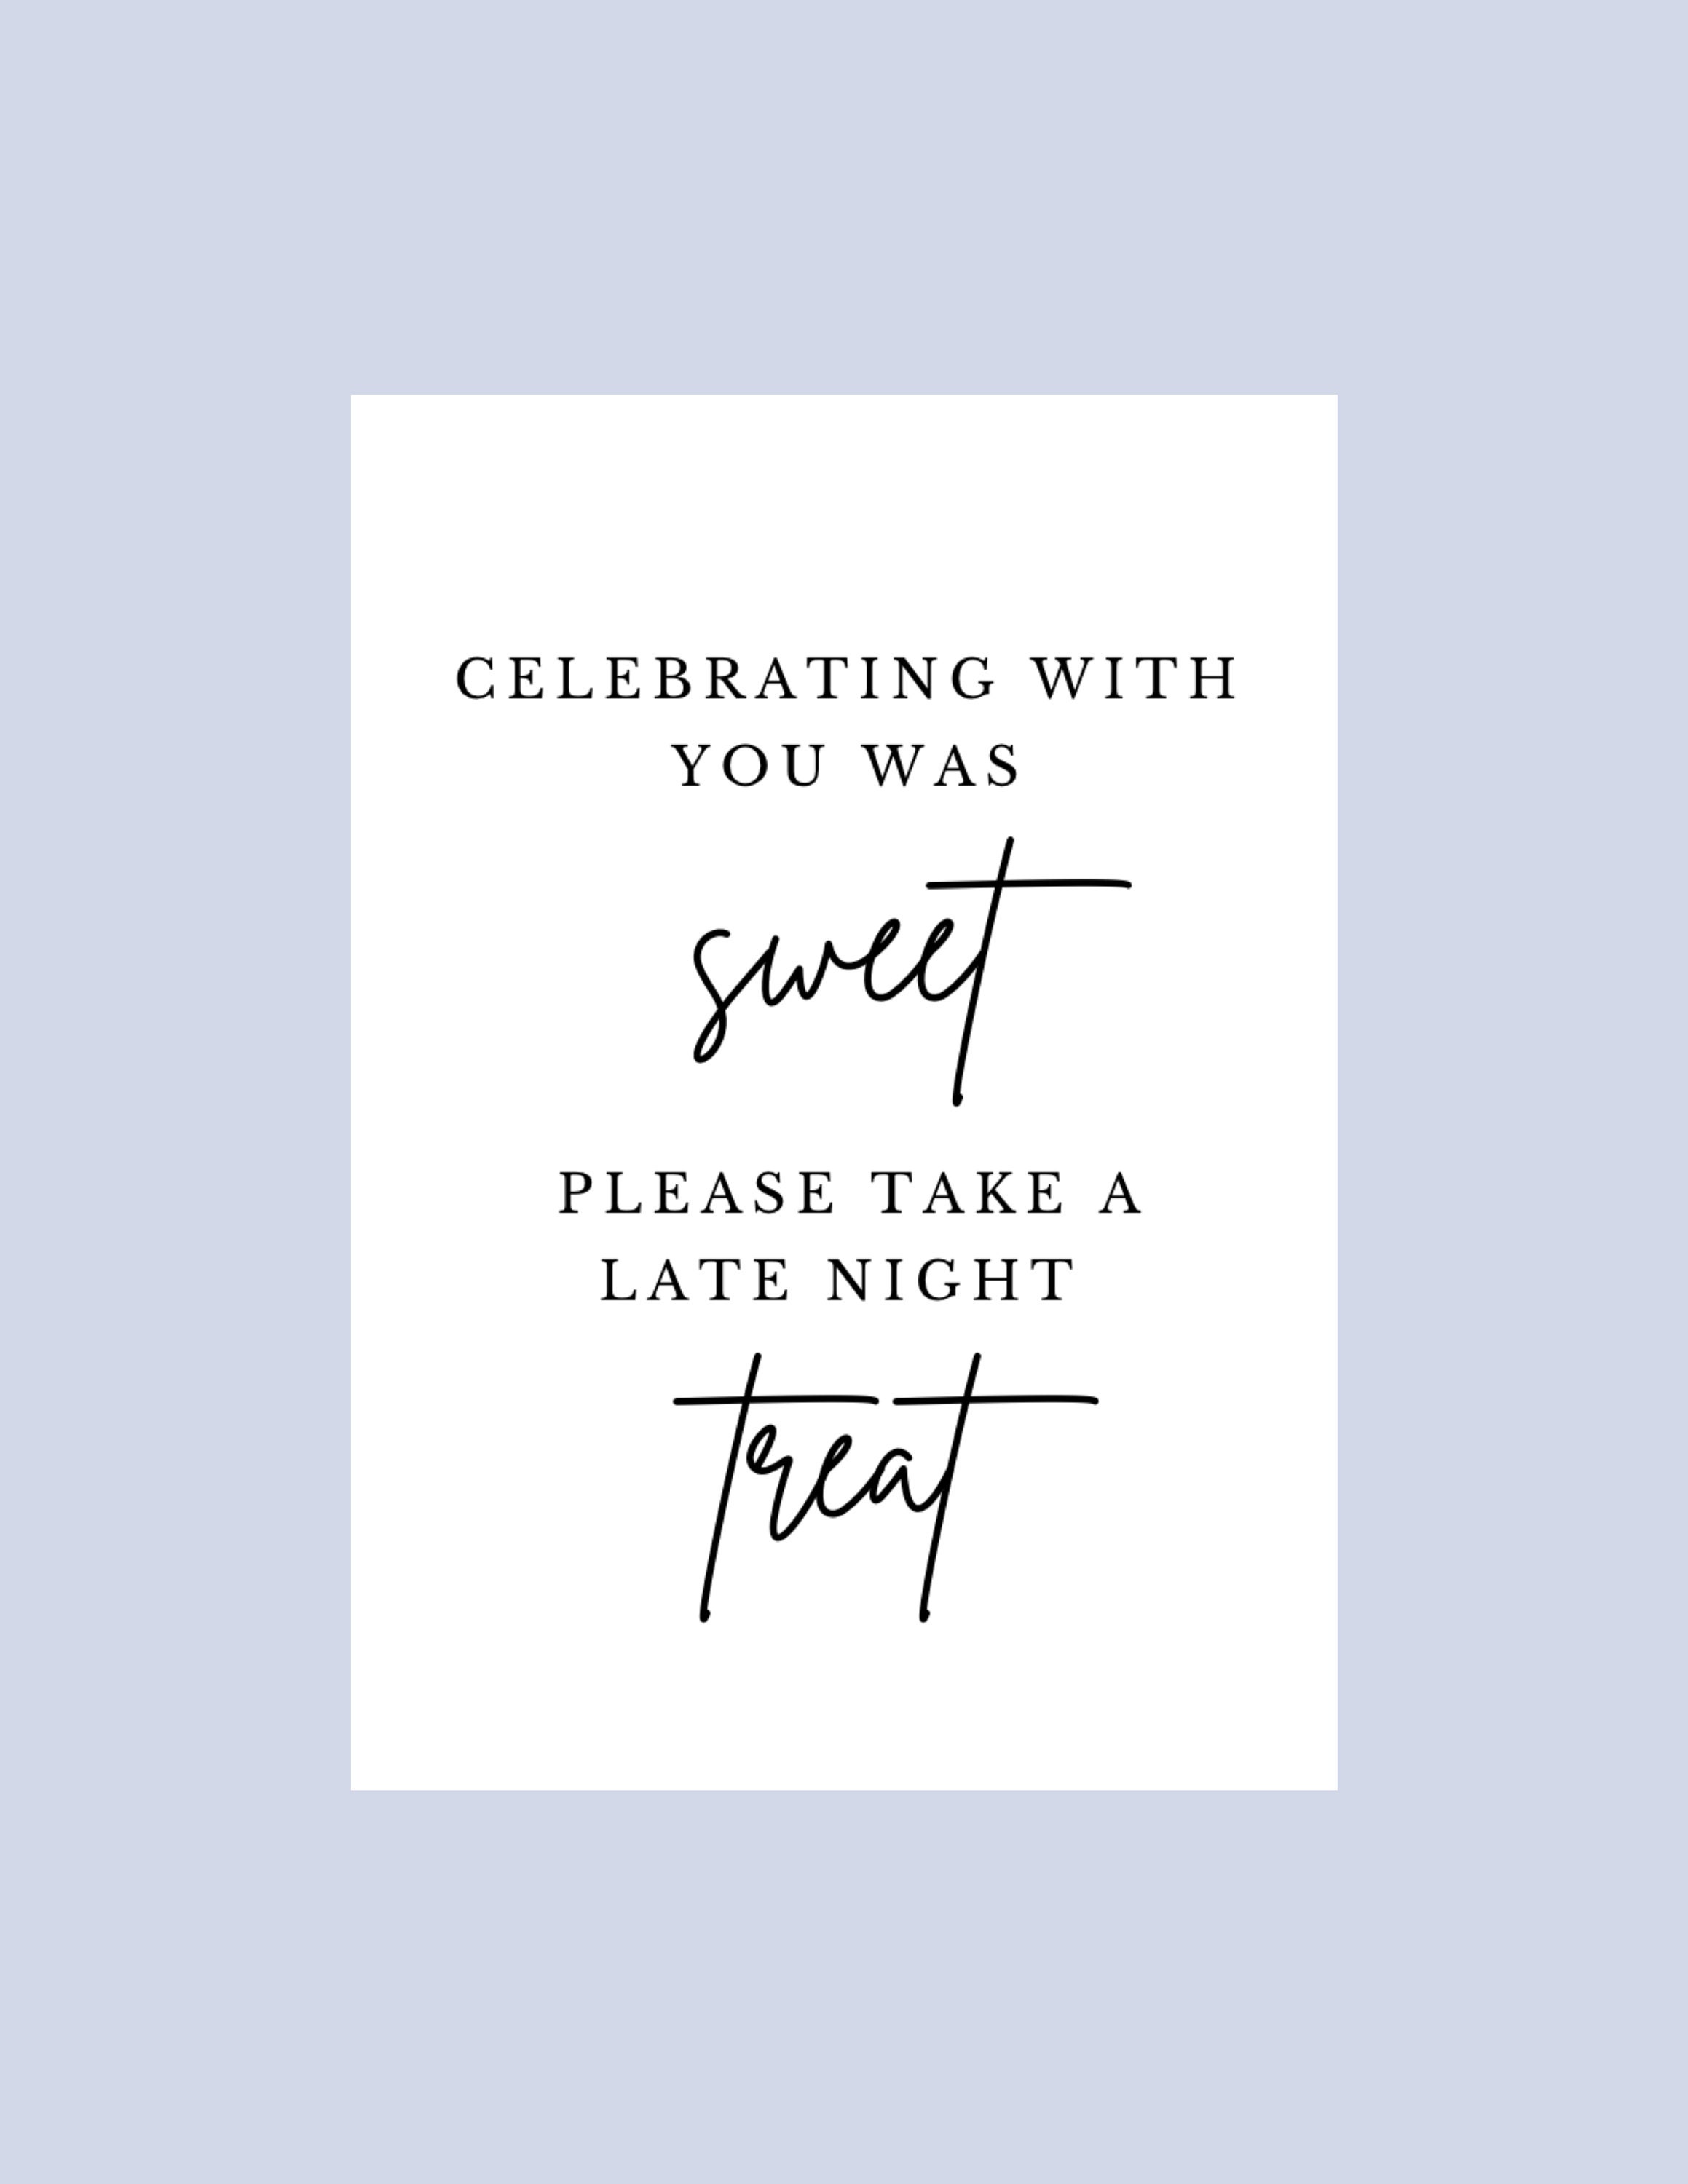 CELEBRATING WITH
YOU WAS
sweet
PLEASE TAKE A
LATE NIGHT
treat